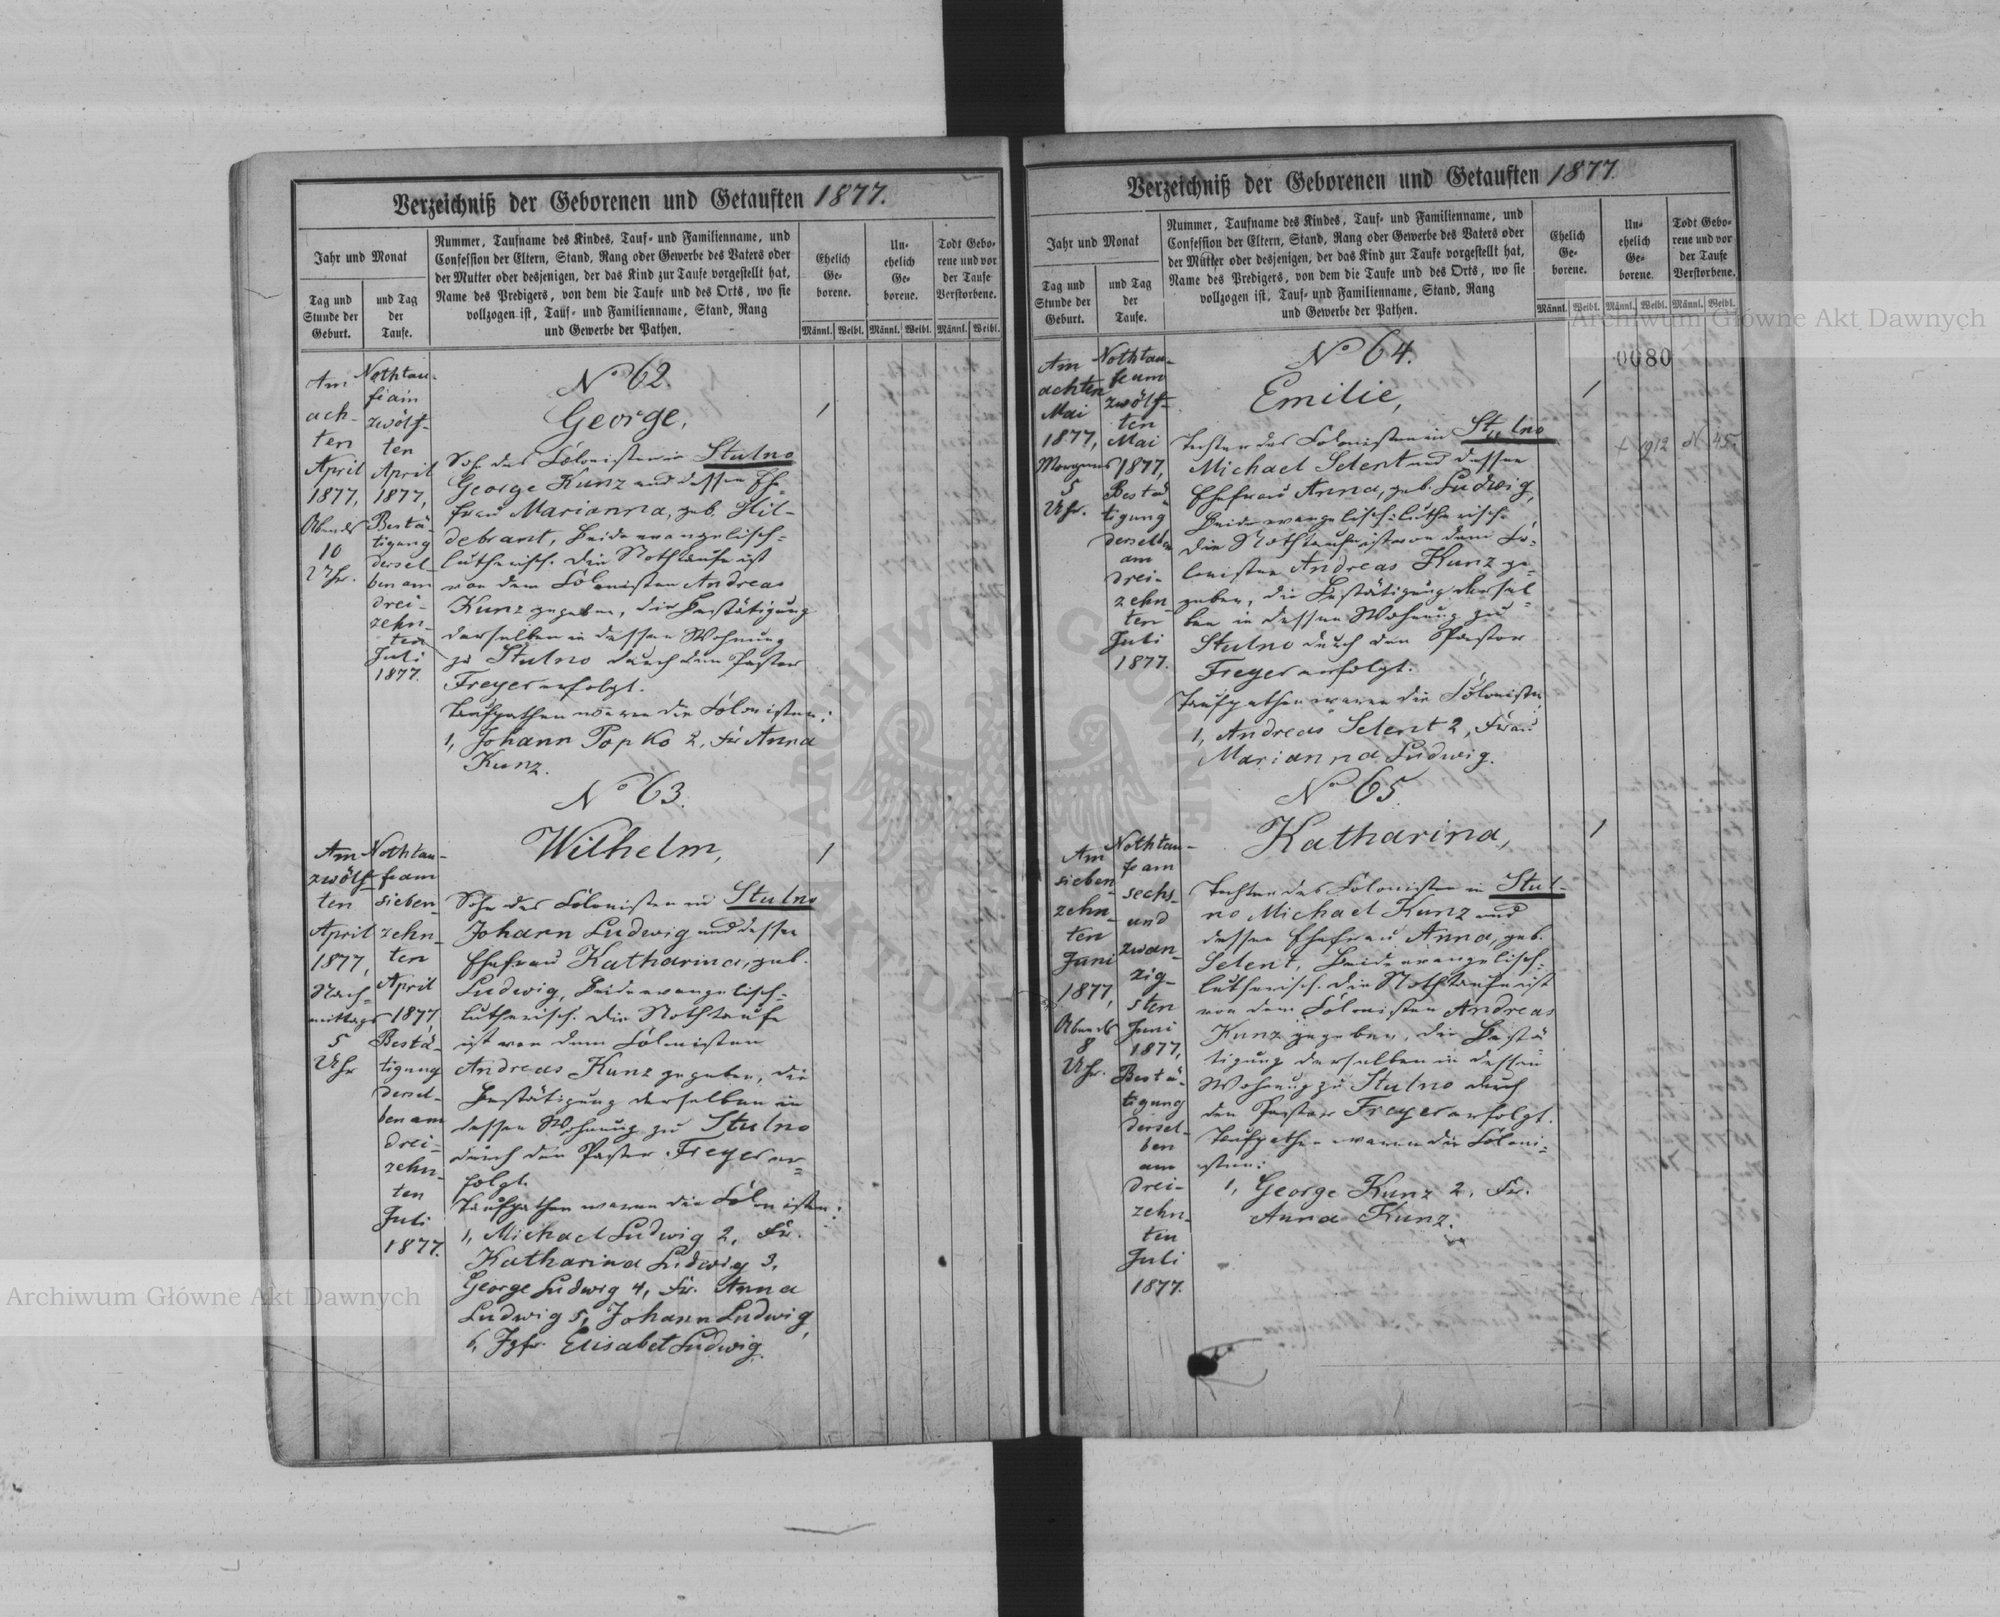 Verzeichniß der Geborenen und Getauften 1877.
Jahr und Monat
Tag und
Stunde der
Geburt.
und Tag
der
Taufe.
Nummer, Taufname des Kindes, Tauf- und Familienname, und
Confession der Eltern, Stand, Rang oder Gewerbe des Vaters oder
der Mutter oder desjenigen, der das Kind zur Taufe vorgestellt hat,
Name des Predigers, von dem die Taufe und des Orts, wo sie
vollzogen ist, Tauf- und Familienname, Stand, Rang
und Gewerbe der Pathen.
Ehelich
Ge-
borene.
Un-
ehelich
Ge-
borene.
Todt Gebo-
rene und vor
der Taufe
Verstorbene.
Männl. Weibl. Männl. Weibl. Männl. Weibl.
Am
ach-
ten
April
1877,
Abends
10
Uhr.
Nothtau-
fe am
zwölf-
ten
April
1877,
Bestä-
tigung
dersel
ben am
drei-
zehn-
ten
Juli
1877.
No 62.
George,
Sohn des Colonisten in Stulno
George Kunz und dessen Ehe-
frau Marianna, geb. Hil-
debrant, Beide evangelisch-
lutherisch. Die Nothtaufe ist
von dem Colonisten Andreas
Kunz gegeben, die Bestätigung
derselben in dessen Wohnung
zu Stulno durch den Pastor
Freyer erfolgt.
Taufpathen waren die Colonisten:
1, Johann Popko 2, Fr. Anna
Kunz.
1
Am
zwölf-
ten
April
1877,
Nach-
mittags
5
Uhr
Nothtau-
fe am
sieben-
zehn-
ten
April
1877,
Bestä-
tigung
dersel-
ben am
drei-
zehn-
ten
Juli
1877.
No 63.
Wilhelm,
Sohn des Colonisten in Stulno
Johann Ludwig und dessen
Ehefrau Katharina, geb.
Ludwig, Beide evangelisch-
lutherisch. Die Nothtaufe
ist von dem Colonisten
Andreas Kunz gegeben, die
Bestätigung derselben in
dessen Wohnung zu Stulno
durch den Pastor Freyer er-
folgt.
Taufpathen waren die Colonisten:
1, Michael Ludwig 2, Fr.
Katharina Ludwig 3,
George Ludwig 4, Fr. Anna
Ludwig 5, Johann Ludwig,
6, Jgfr. Elisabet Ludwig.
1
Verzeichniß der Geborenen und Getauften 1877.
Jahr und Monat
Tag und
Stunde der
Geburt.
und Tag
der
Taufe.
Nummer, Taufname des Kindes, Tauf- und Familienname, und
Confession der Eltern, Stand, Rang oder Gewerbe des Vaters oder
der Mutter oder desjenigen, der das Kind zur Taufe vorgestellt hat,
Name des Predigers, von dem die Taufe und des Orts, wo sie
vollzogen ist, Tauf- und Familienname, Stand, Rang
und Gewerbe der Pathen.
Ehelich
Ge-
borene.
Un-
ehelich
Ge-
borene.
Todt Gebo-
rene und vor
der Taufe
Verstorbene.
Männl. Weibl. Männl. Weibl. Männl. Weibl.
0080
Am
achten
Mai
1877,
Morgens
5
Uhr.
Nothtau-
fe am
zwölf-
ten
Mai
1877,
Bestä
tigung
derselben
am
drei-
zehn-
ten
Juli
1877.
No 64.
Emilie,
Tochter des Colonisten in Stulno
Michael Selent und dessen
Ehefrau Anna, geb. Ludwig,
Beide evangelisch-lutherisch.
Die Nothtaufe ist von dem Co-
lonisten Andreas Kunz ge-
geben, die Bestätigung dersel-
ben in dessen Wohnung zu
Stulno durch den Pastor
Freyer erfolgt.
Taufpathen waren die Colonisten:
1, Andreas Selent 2, Frau
Marianna Ludwig.
1
Am
sieben-
zehn-
ten
Juni
1877,
Abends
8
Uhr.
Nothtau-
fe am
sechs-
und
zwan-
zig-
sten
Juni
1877,
Bestä-
tigung
dersel-
ben
am
drei-
zehn-
ten
Juli
1877.
No 65.
Katharina,
Tochter des Colonisten in Stul-
no Michael Kunz und
dessen Ehefrau Anna, geb.
Selent, Beide evangelisch-
lutherisch. Die Nothtaufe ist
von dem Colonisten Andreas
Kunz gegeben, die Bestä-
tigung derselben in dessen
Wohnung zu Stulno durch
den Pastor Freyer erfolgt.
Taufpathen waren die Coloni-
sten:
1, George Kunz 2, Fr.
Anna Kunz.
1
Archiwum Główne Akt Dawnych
Archiwum Główne Akt Dawnych
ARCHIWUM GŁÓWNE AKT DAWNYCH